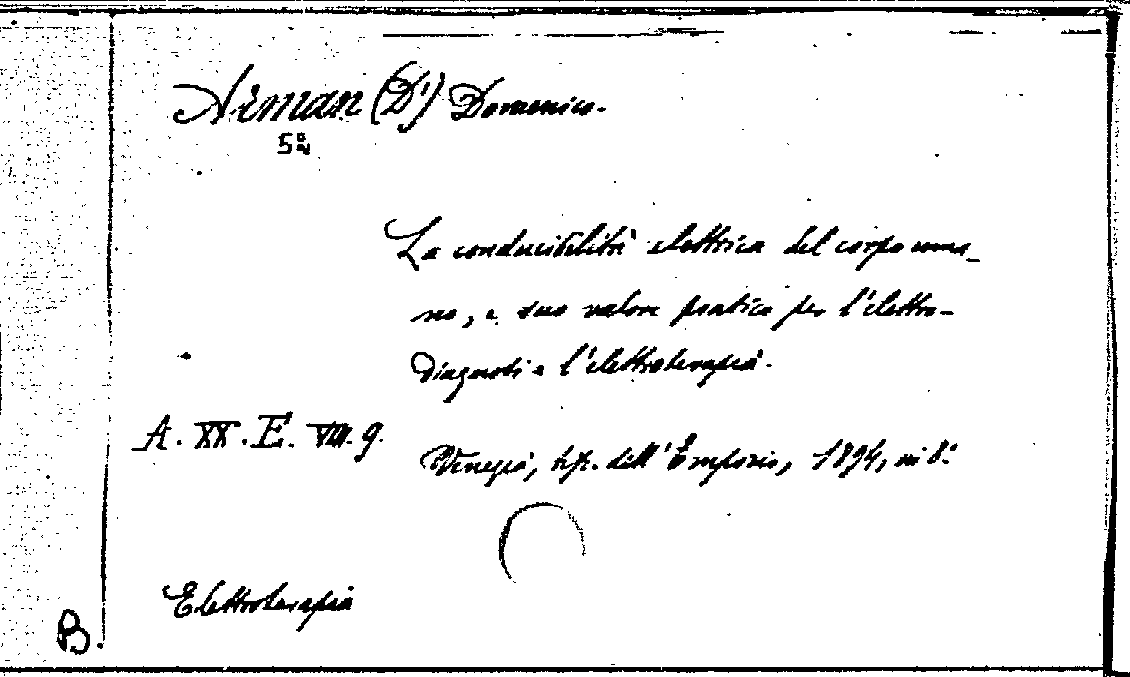 Arman (D') Domenico.
5a
La conducibilità elettrica del corpo uma-
no, e suo valore pratico per l'elettro-
diagnosi e l'elettroterapia.
A. XX. E. VIII. 9.
Venezia, tip. dell'Emporio, 1894, in 8.°
Elettroterapia
B.